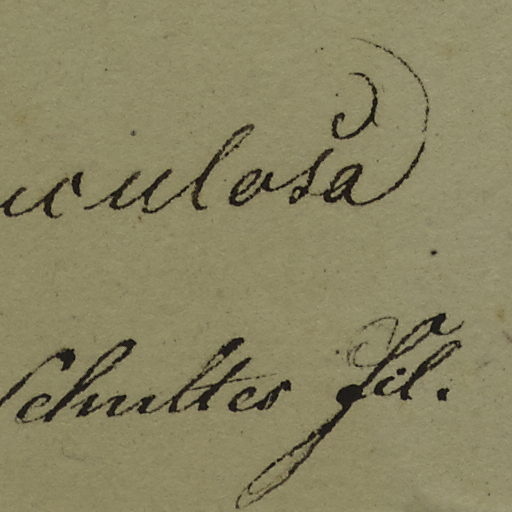 uculosa
Schultes fil.